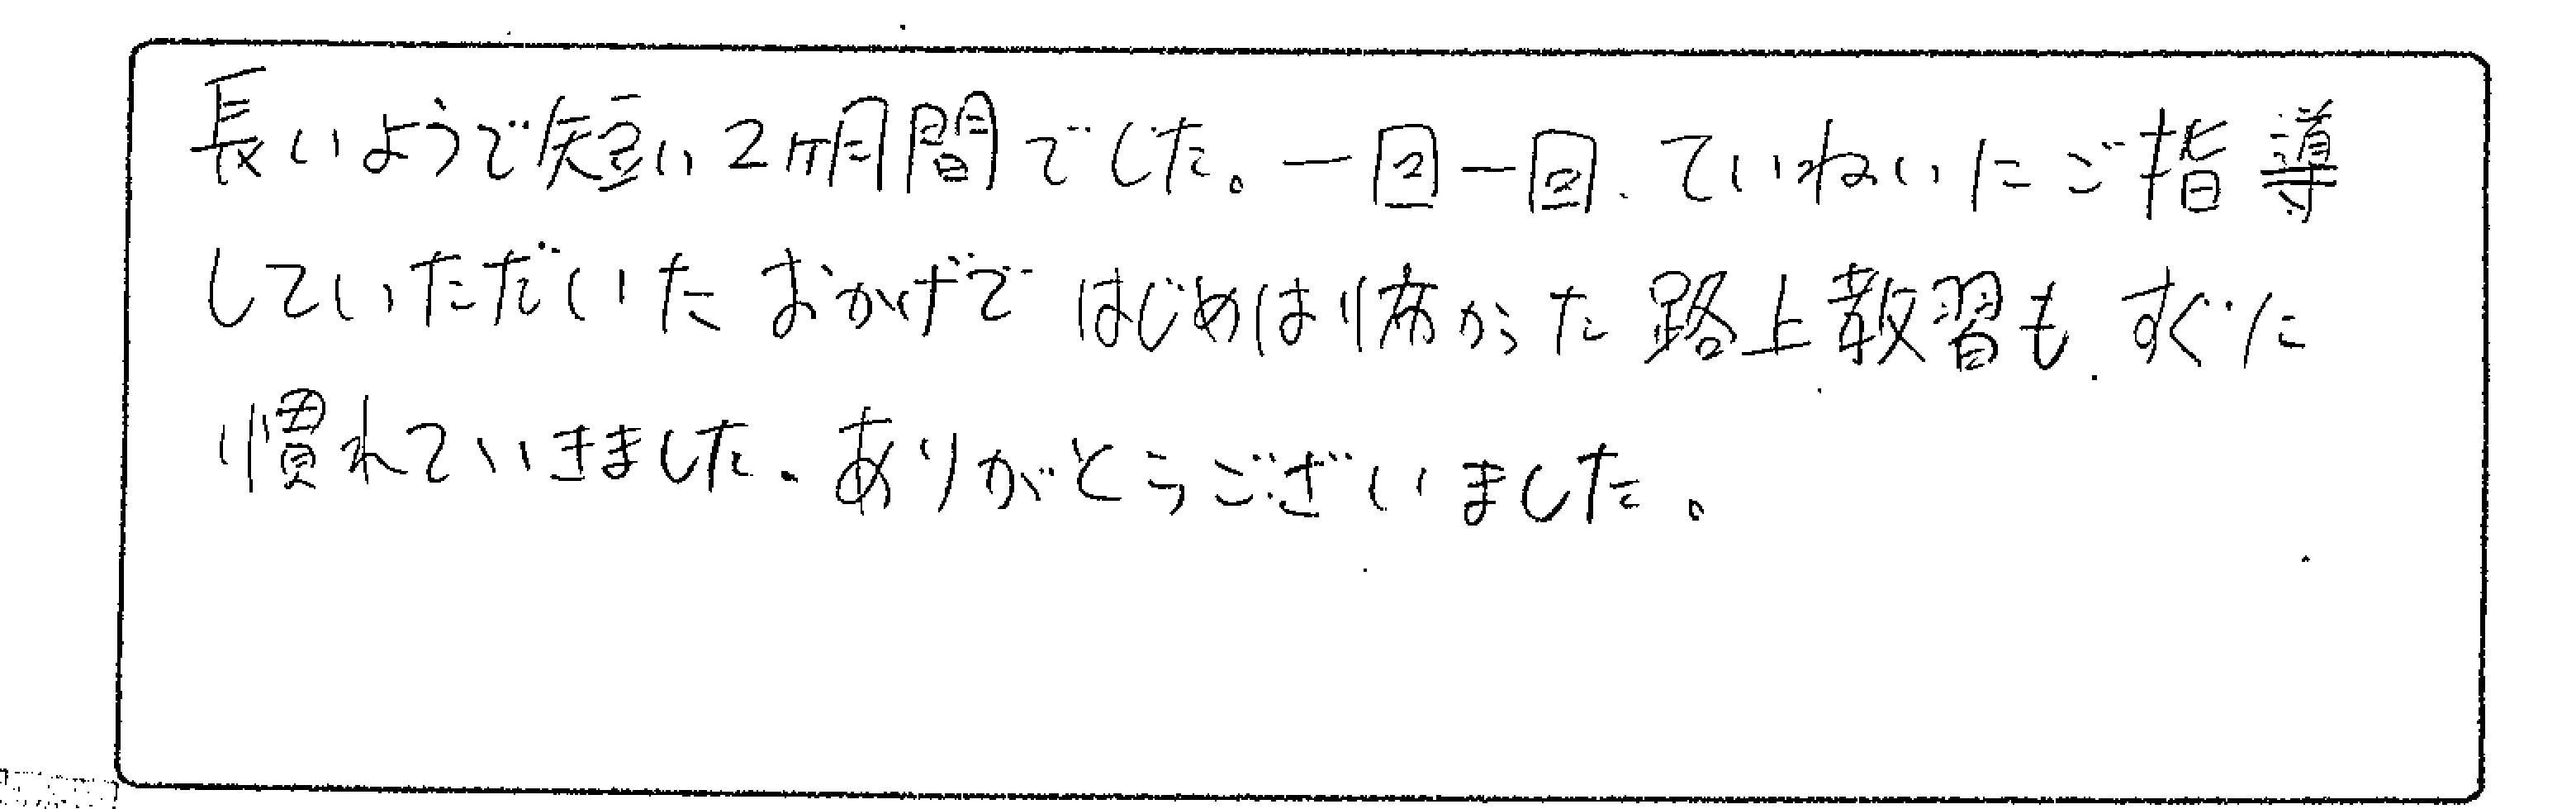 長いようで短い2ヶ月間でした。一回一回、ていねいにご指導
していただいたおかげではじめは怖かった路上教習も、すぐに
慣れていきました。ありがとうございました。